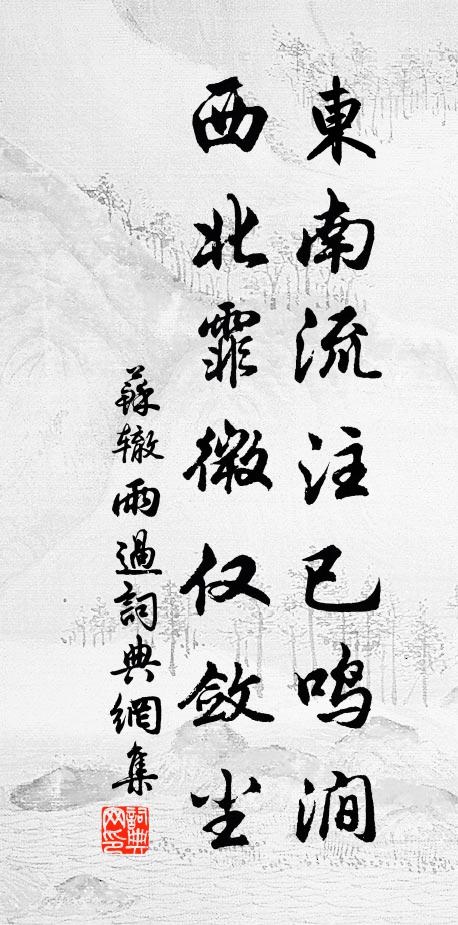 東南流注已鸣澗
西北霏微仅斂尘
蘇辙雨過詞典網集
詞典网印